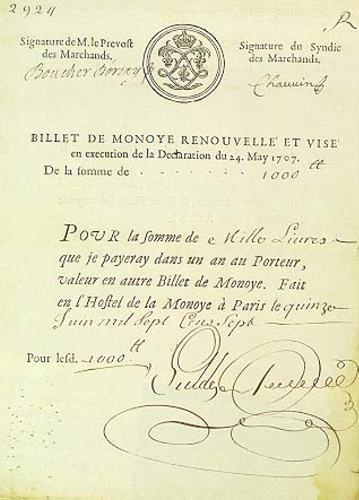 2924
R
Signature de M. le Prevost
des Marchands.
Boucher Dorsay
Signature du Syndic
des Marchands.
Chauvin
BILLET DE MONOYE RENOUVELLE' ET VISE'
en execution de la Declaration du 24. May 1707.
De la somme de - - - - - - 1000 tt
POUR la somme de Mille Livres
que je payeray dans un an au Porteur,
valeur en autre Billet de Monoye. Fait
en l'Hostel de la Monoye à Paris le quinze
Juin mil sept Cens sept
Pour lesd. 1000 tt